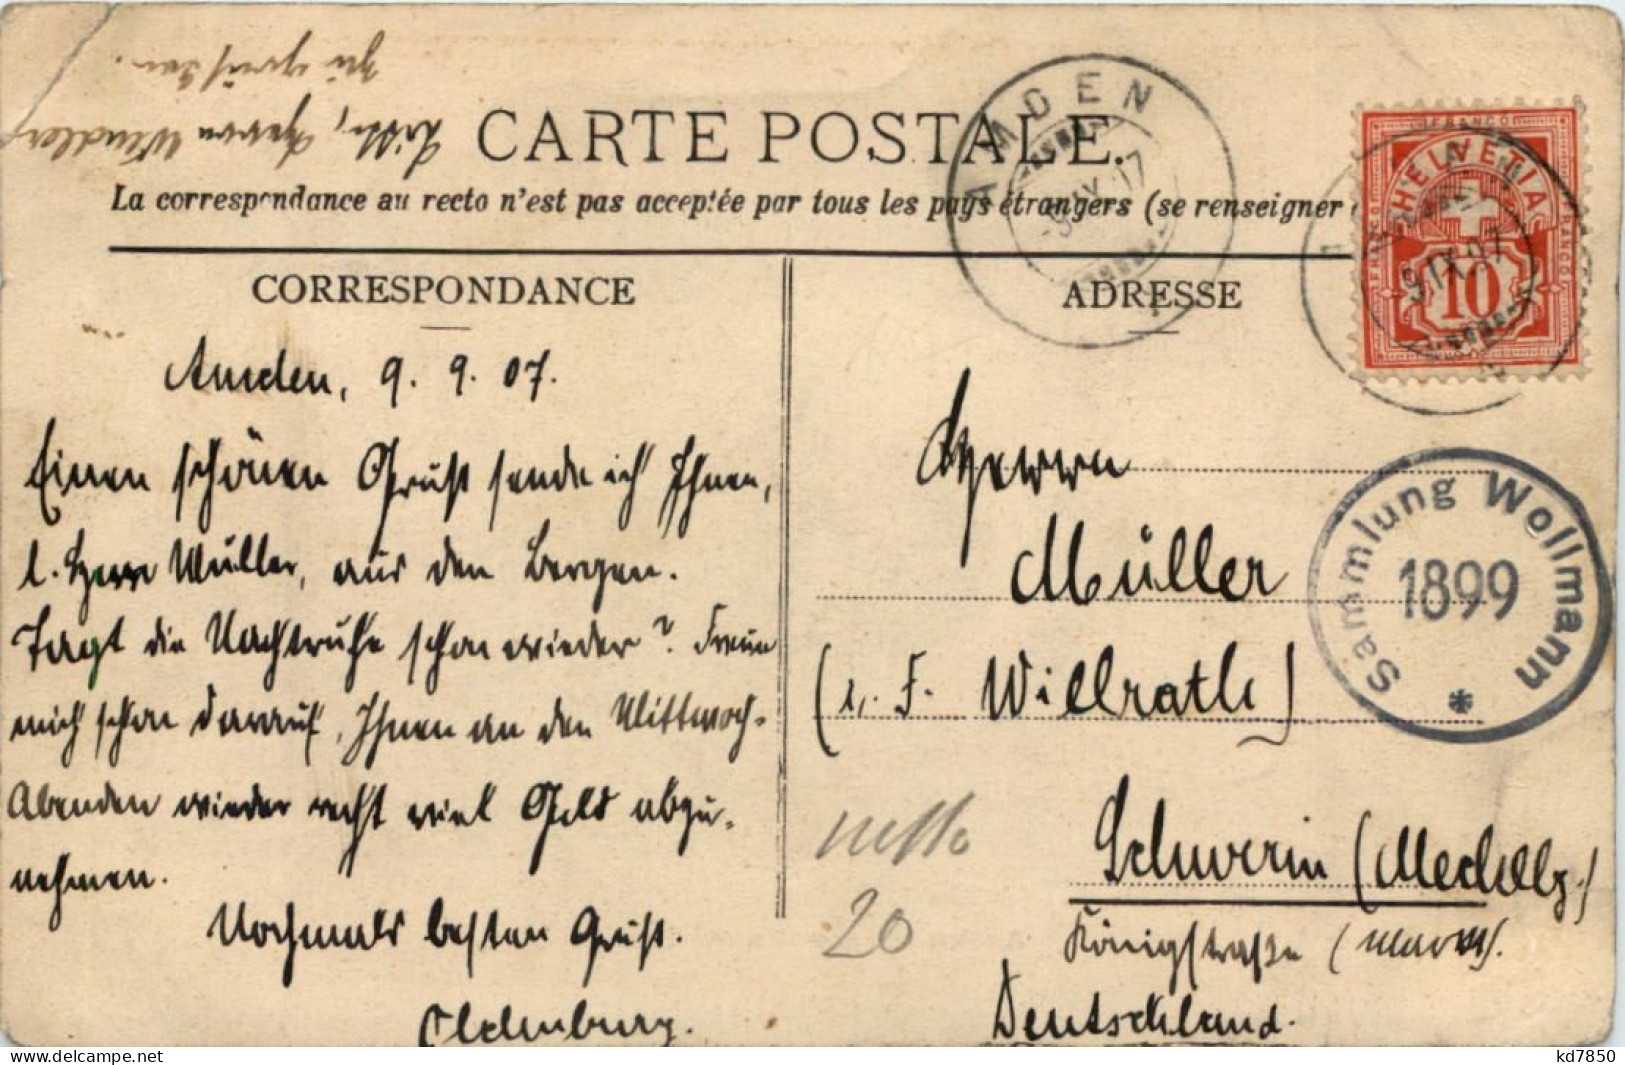 zu grüßen.
Bitte, Herrn Windler
CARTE POSTALE.
La correspondance au recto n'est pas acceptée par tous les pays étrangers (se renseigner
CORRESPONDANCE
ADRESSE
AMDEN
9.IX.07
FRANCO
HELVETIA
FRANCO
FRANCO
10
9.IX.07
Amden, 9. 9. 07.
Einen schönen Gruß sende ich Ihnen,
l. Herr Müller, aus den Bergen.
Tagt die Nachtruhe schon wieder? Freue
mich schon darauf, Ihnen an den Mittwoch-
Abenden wieder recht viel Geld abzu-
nehmen.
Nochmals besten Gruß.
Oldenburg.
Herrn
Müller
(i. F. Willrath)
Schwerin (Mecklbg.)
Königstraße
Deutschland.
Sammlung Wollmann
1899
*
netto
20
www.delcampe.net
kd7850